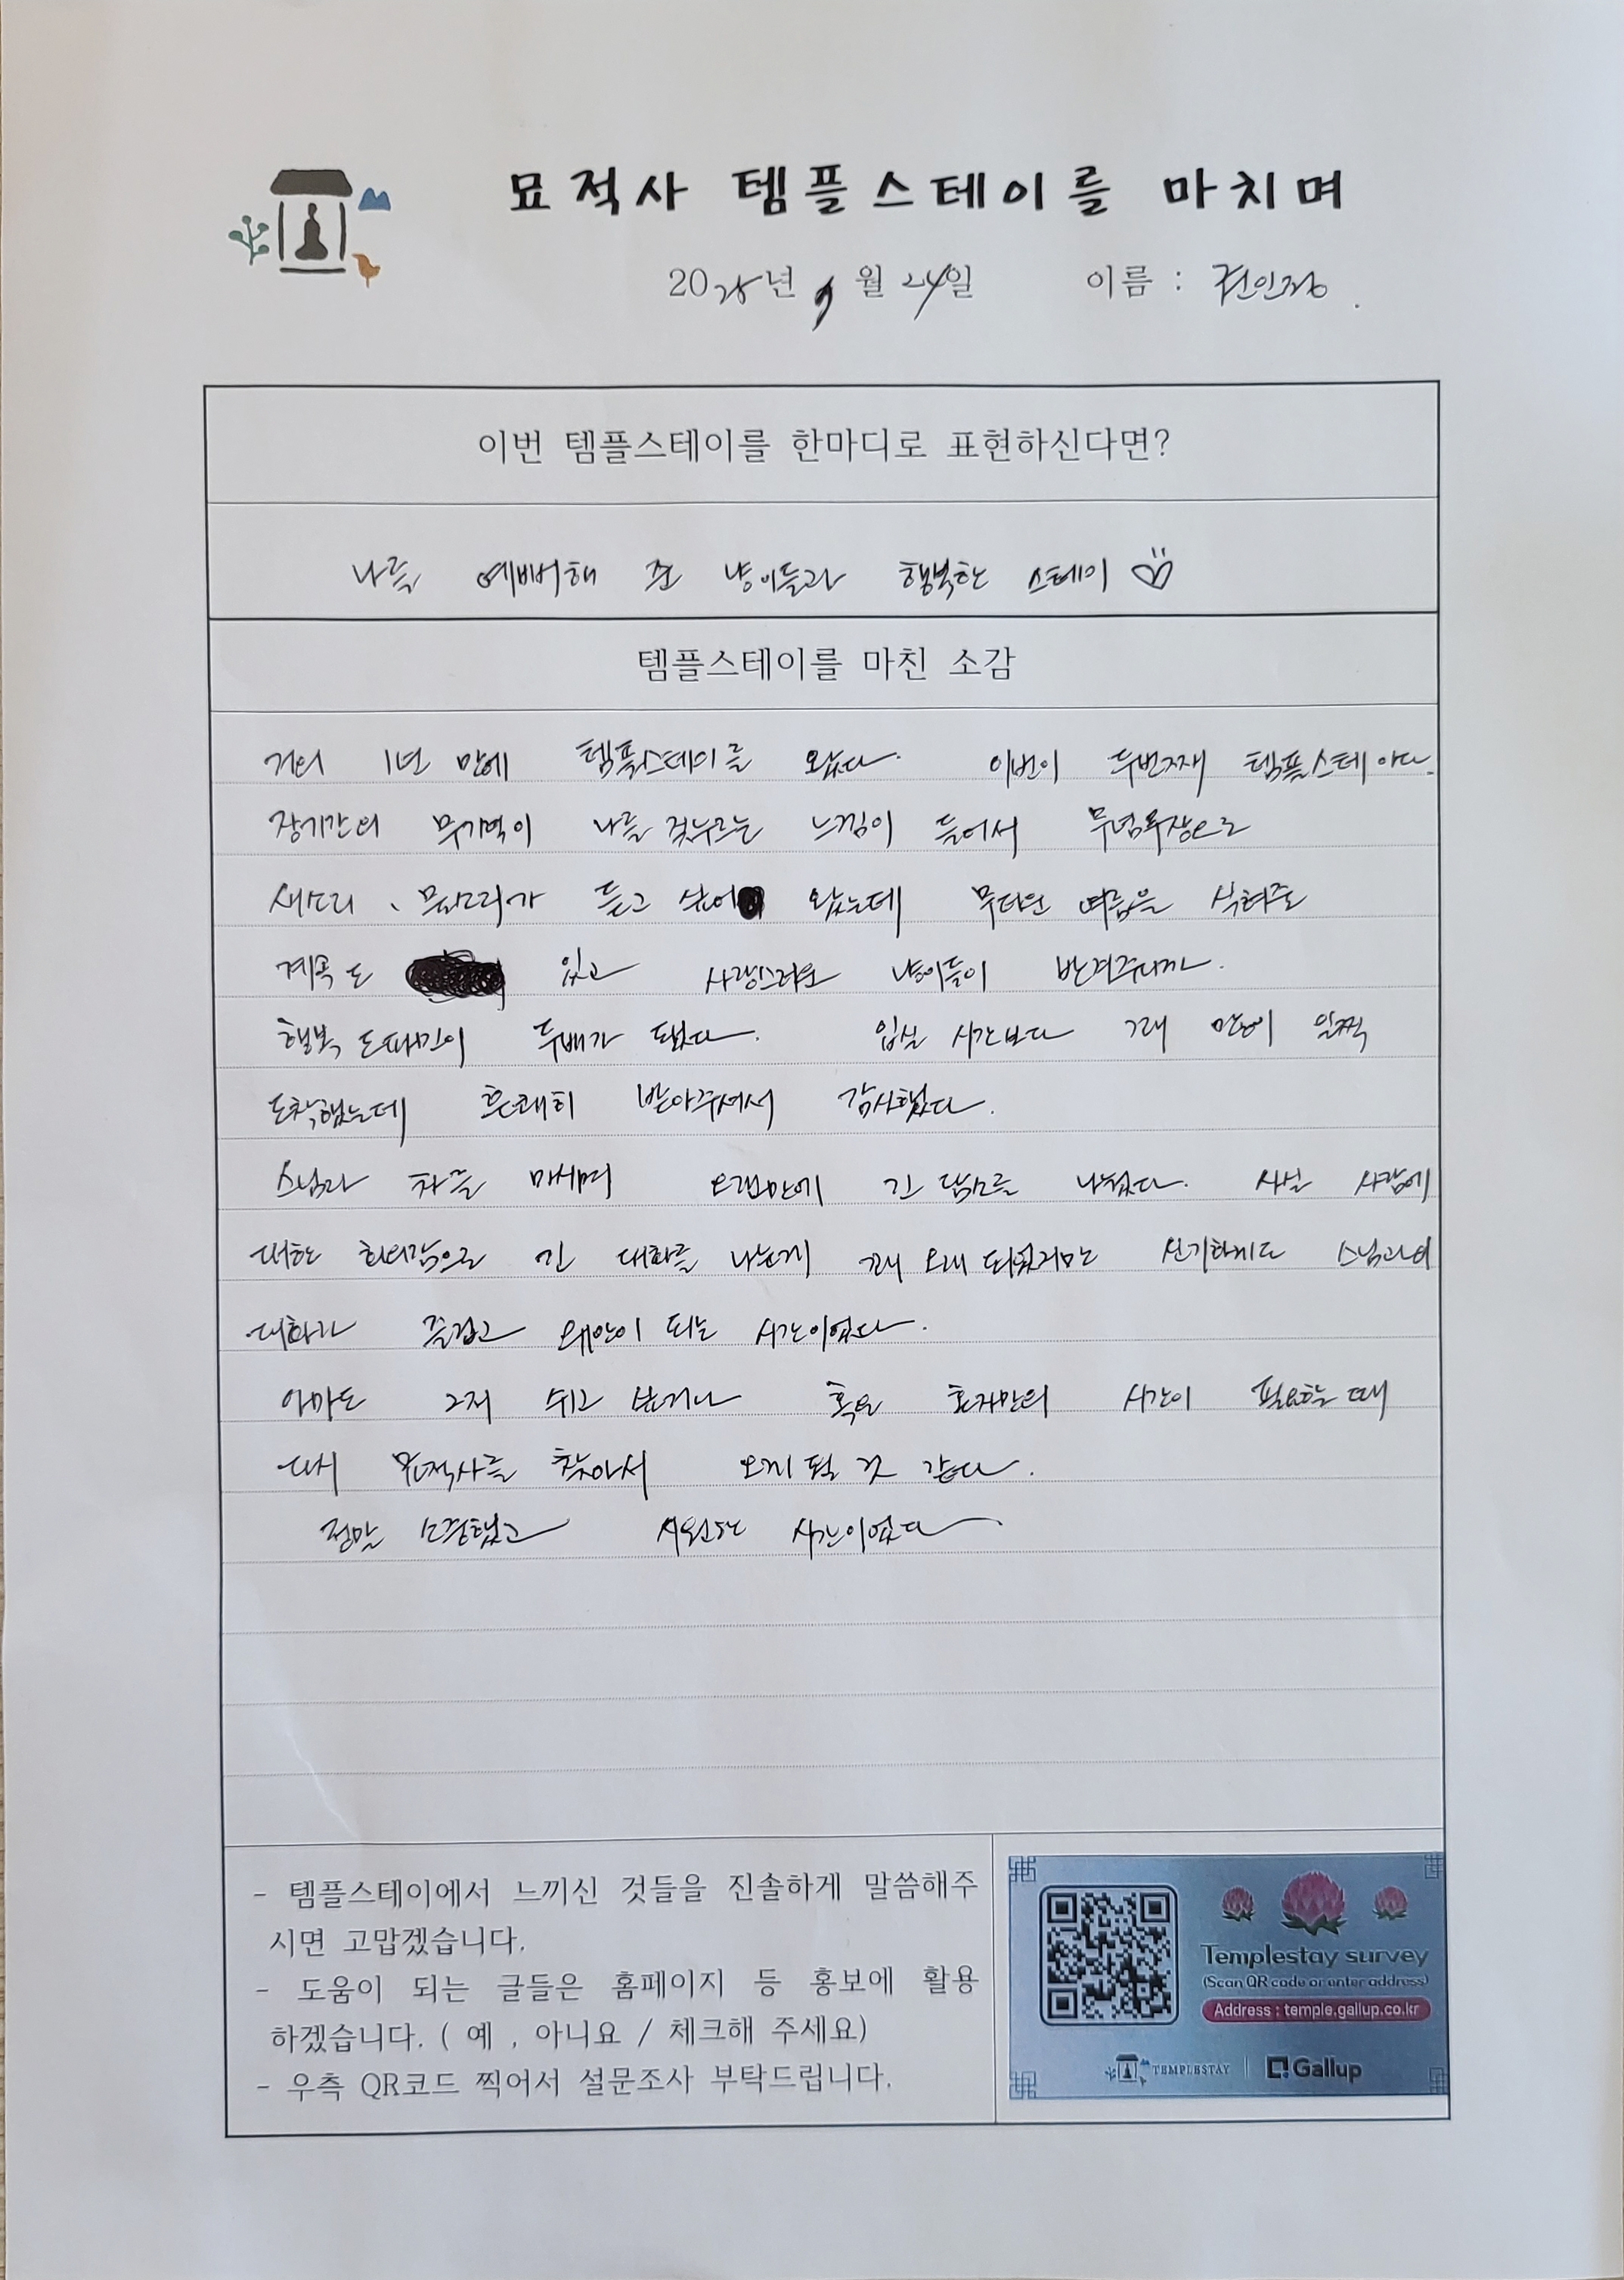 묘적사 템플스테이를 마치며
2025년 9월 24일 이름 :
이번 템플스테이를 한마디로 표현하신다면?
나를 예뻐해 준 냥이들과 행복한 스테이
템플스테이를 마친 소감
거의 1년 만에 템플스테이를 왔다. 이번이 두번째 템플스테이다.
장기간의 무기력이 나를 짓누르는 느낌이 들어서
새소리, 물소리가 듣고 싶어 왔는데 무더운 여름을 식혀줄
계곡도 있고 사랑스러운 냥이들이 반겨주니까.
행복 도파민이 두배가 됐다. 입실 시간보다 꽤 많이 일찍
도착했는데 흔쾌히 받아주셔서 감사했다.
스님과 차를 마시며 오랜만에 긴 담소를 나눴다. 사실 사람에
대한 회의감으로 긴 대화를 나눈게 꽤 오래 되었지만 신기하게도 스님과의
대화가 즐겁고 위안이 되는 시간이었다.
아마도 그저 쉬고 싶거나 혹은 혼자만의 시간이 필요할 때
다시 묘적사를 찾아서 오게 될 것 같다.
정말 소중했고 시원한 시간이었다.
- 템플스테이에서 느끼신 것들을 진솔하게 말씀해주
시면 고맙겠습니다.
- 도움이 되는 글들은 홈페이지 등 홍보에 활용
하겠습니다. ( 예 , 아니요 / 체크해 주세요)
- 우측 QR코드 찍어서 설문조사 부탁드립니다.
Templestay survey
(Scan QR code or enter address)
Address : temple.gallup.co.kr
TEMPLESTAY Gallup